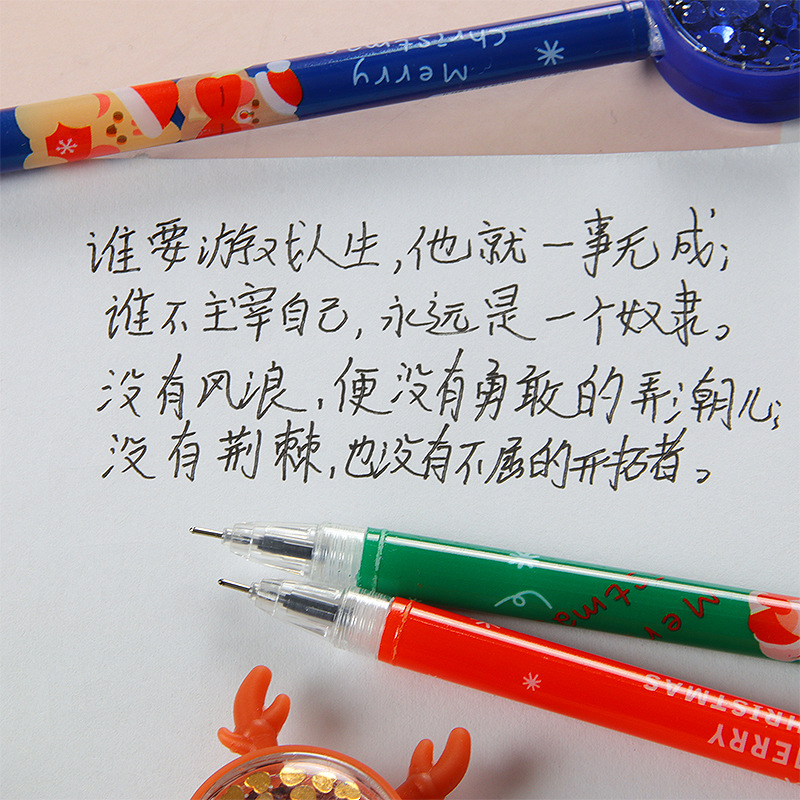 Merry
Christmas
谁要游戏人生,他就一事无成;
谁不主宰自己,永远是一个奴隶。
没有风浪,便没有勇敢的弄潮儿;
没有荆棘,也没有不屈的开拓者。
MERRY
CHRISTMAS